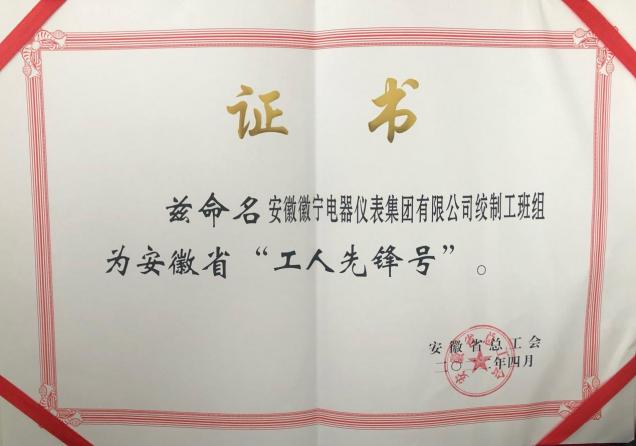 证书
兹命名安徽徽宁电器仪表集团有限公司绞制工班组
为安徽省“工人先锋号”。
安徽省总工会
二〇一 年四月